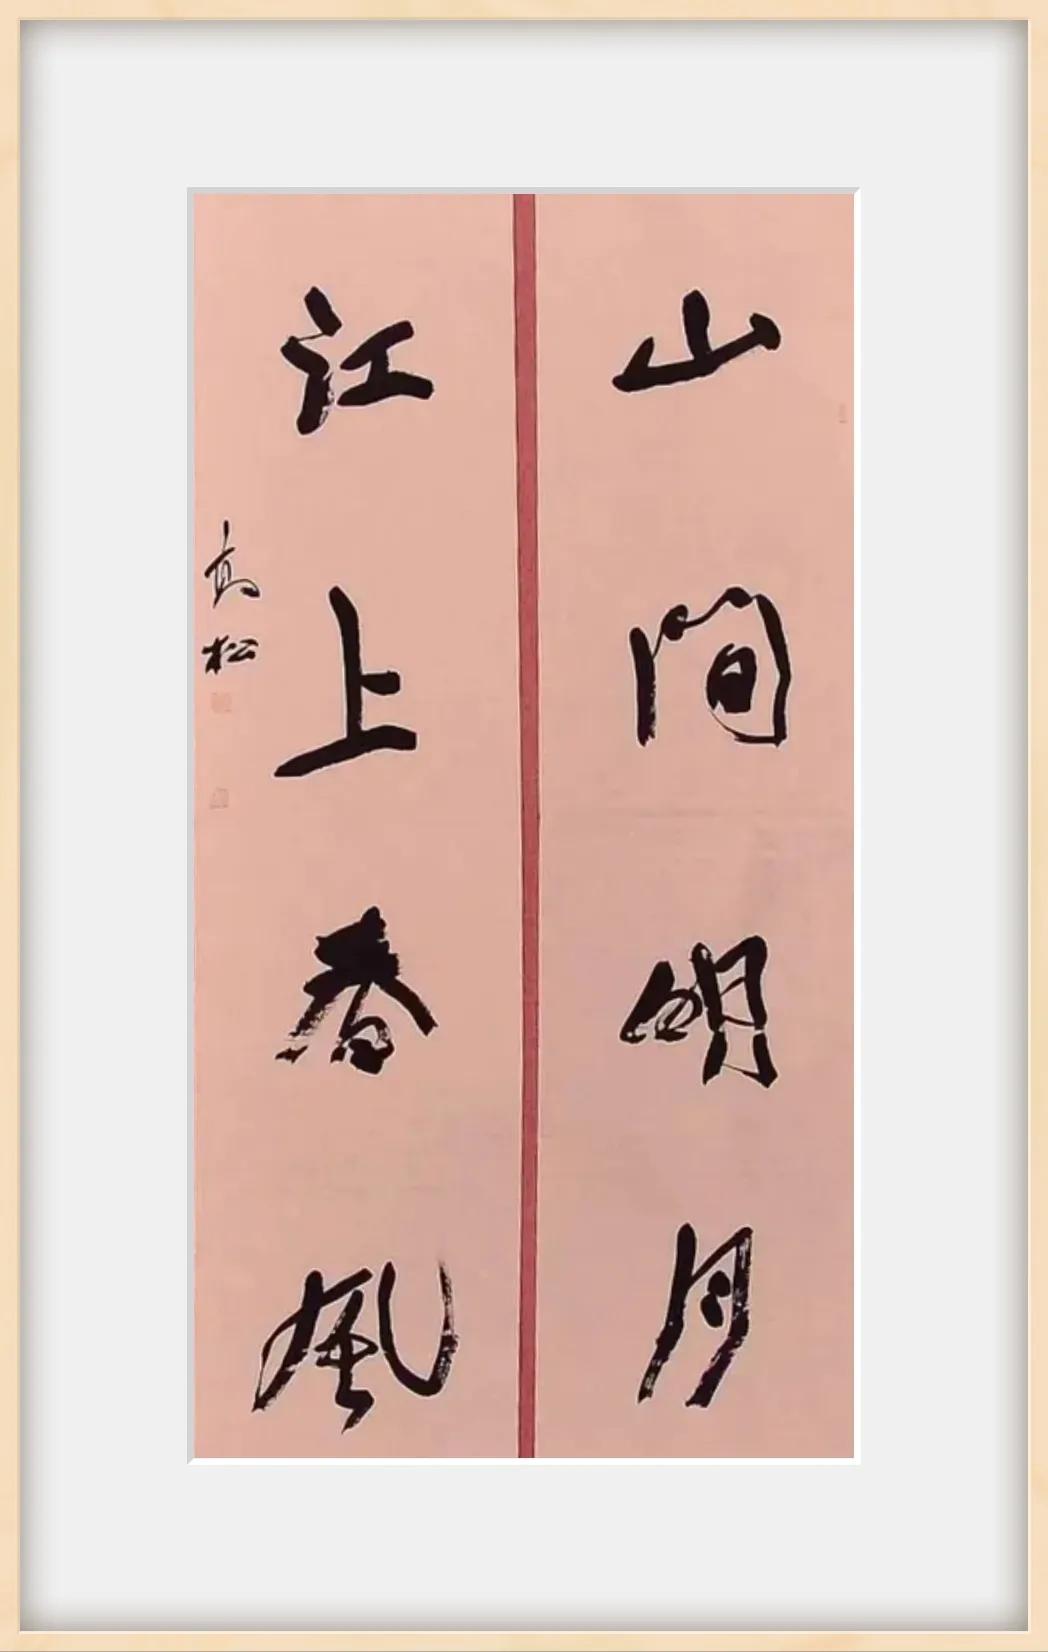 山間明月
江上春風
高松